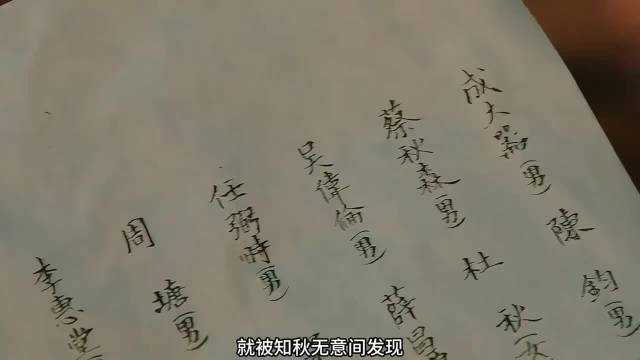 成大器(男) 陳鈞(男
蔡秋森(男) 杜秋(女
吳偉倫(男) 薛昌
任弼時(男)
周塘(男)
李惠堂
就被知秋无意间发现